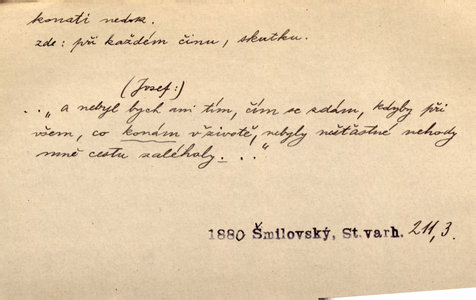 konati nedok.
zde: při každém činu, skutku.
(Josef:)
.. „a nebyl bych ani tím, čím se zdám, kdyby při
všem, co konám v životě, nebyly nešťastné nehody
mně cestu zaléhaly. ..."
1880 Šmilovský, St.varh. 211,3.